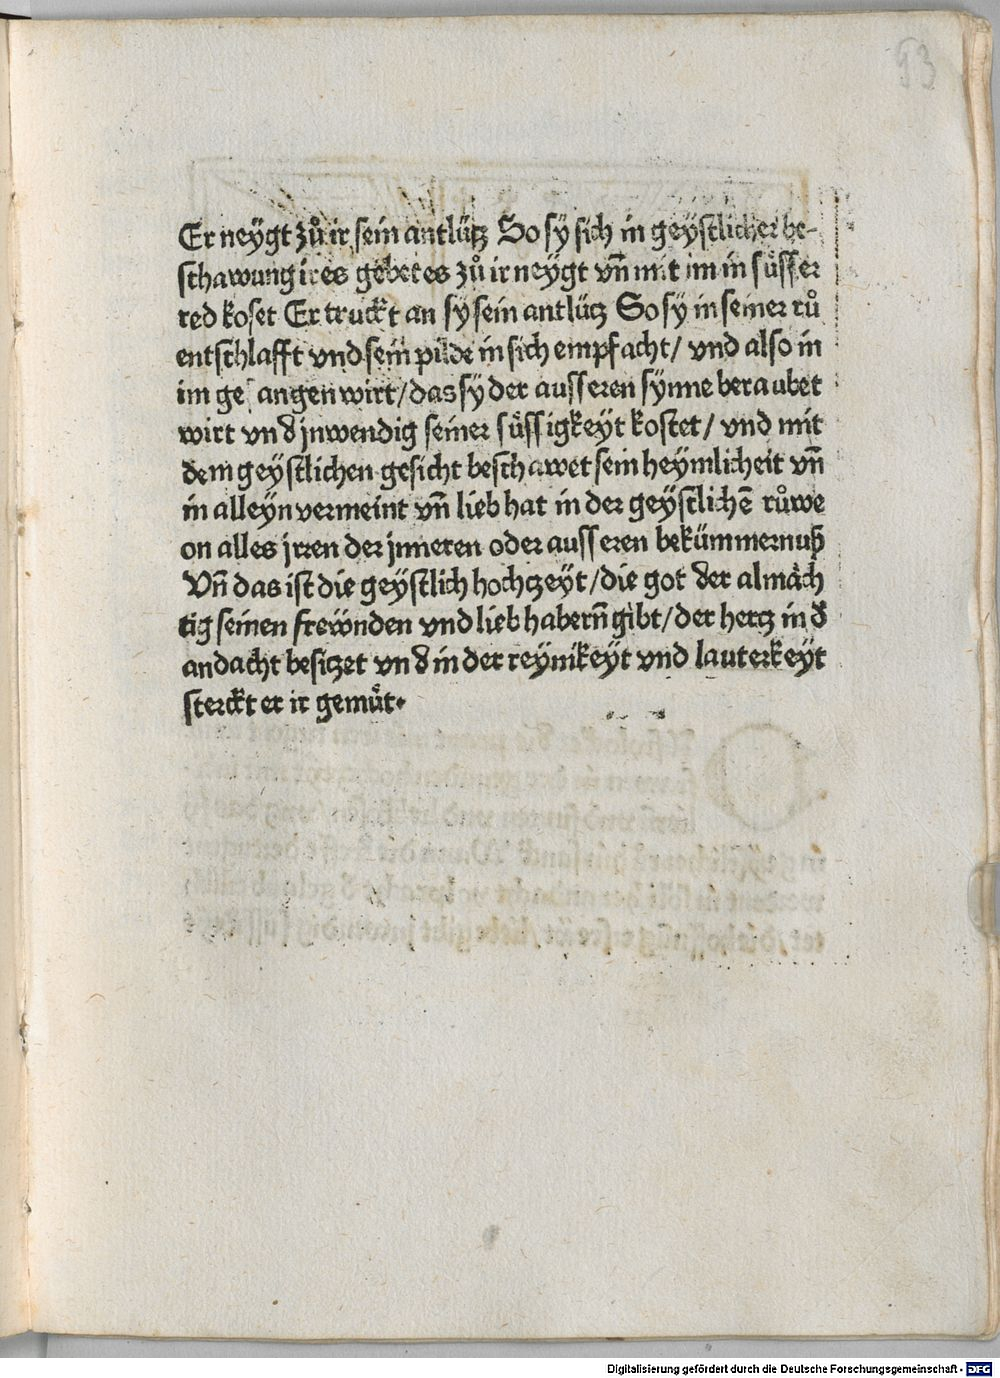 93
Er neygt zů ir sein antlütz So sÿ sich in geÿstlicher be-
schawung ires gebetes zů ir neÿgt vn̄ mit im in süsser
red koset Er truckt an sÿ sein antlütz So sÿ in seiner rů
entschlafft vnd sein pilde in sich empfacht/ vnd also in
im gefangen wirt/das sÿ der ausseren sÿnne beraubet
wirt vnd jnwendig seiner süssigkeÿt kostet/ vnd mit
dem geÿstlichen gesicht beschawet sein heÿmlicheit vn̄
in alleÿn vermeint vn̄ lieb hat in der geÿstlichē růwe
on alles jrren der jnneren oder ausseren bekümmernuß
Vn̄ das ist die geÿstlich hochtzeÿt/die got der almäch
tig seinen frewnden vnd liebhabern̄ gibt/der hertz in d̄
andacht besitzet vnd in der reÿnikeÿt vnd lauterkeÿt
sterckt er ir gemüt.
Digitalisierung gefördert durch die Deutsche Forschungsgemeinschaft - DFG